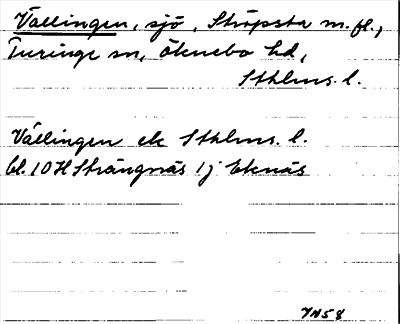 Vällingen, sjö, Ströpsta m.fl.,
Turinge sn, Öknebo hd,
Sthlms. l.
Vällingen ek Sthlms. l.
bl. 10H Strängnäs 1j Eknäs